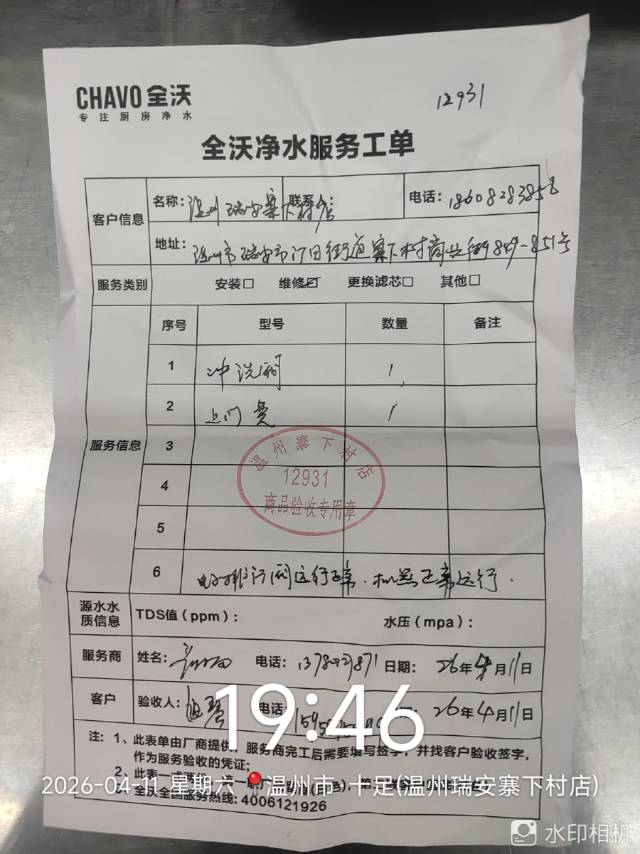 CHAVO 全沃
专注厨房净水
12931
全沃净水服务工单
客户信息
名称：温州瑞安寨下村店 联系人： 电话：18608283858
地址：温州市瑞安市汀田街道寨下村商业街849-851号
服务类别 安装□ 维修☑ 更换滤芯□ 其他□
服务信息
序号 型号 数量 备注
1 冲洗阀 1
2 上门费 1
3
4
5
6 运行正常，机器正常运行.
温州寨下村店
12931
商品验收专用章
源水水质信息 TDS值（ppm）： 水压（mpa）：
服务商 姓名： 电话： 日期：26年4月11日
客户 验收人： 电话 26年4月11日
19:46
注：1、此表单由厂商提供，服务商完工后需要填写签字，并找客户验收签字，
作为服务验收的凭证；
2、此表一式两
全沃全国服务热线：4006121926
2026-04-11 星期六 温州市·十足(温州瑞安寨下村店)
水印相机